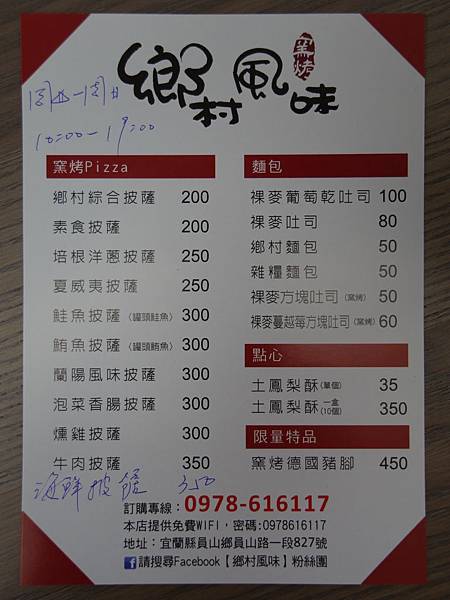 窯烤
鄉村風味
10:00-19:00
窯烤Pizza
鄉村綜合披薩 200
素食披薩 200
培根洋蔥披薩 250
夏威夷披薩 250
鮭魚披薩(罐頭鮭魚) 300
鮪魚披薩(罐頭鮪魚) 300
蘭陽風味披薩 300
泡菜香腸披薩 300
燻雞披薩 300
牛肉披薩 350
海鮮披薩 350
麵包
裸麥葡萄乾吐司 100
裸麥吐司 80
鄉村麵包 50
雜糧麵包 50
裸麥方塊吐司(窯烤) 50
裸麥蔓越莓方塊吐司(窯烤) 60
點心
土鳳梨酥(單個) 35
土鳳梨酥一盒(10個) 350
限量特品
窯烤德國豬腳 450
訂購專線：0978-616117
本店提供免費WIFI，密碼:0978616117
地址：宜蘭縣員山鄉員山路一段827號
f請搜尋Facebook【鄉村風味】粉絲團